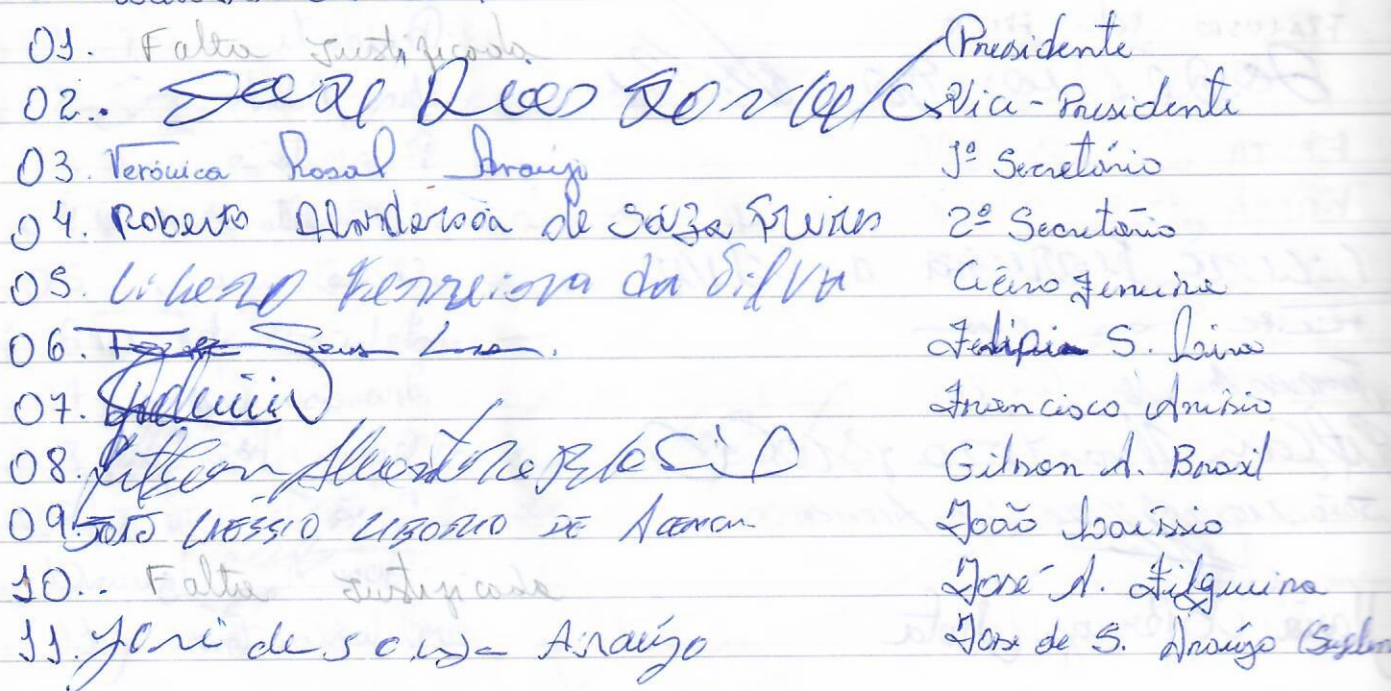 01. Falta Justificada Presidente
02. José Dias Vice-Presidente
03. Verônica Rosal Araújo 1º Secretário
04. Roberto Wanderson de Souza Freires 2º Secretário
05. Cícero Ferreira da Silva Cícero Ferreira
06. Felipe Sous Lira. Felipe S. Lira
07. Francisco Anísio
08. Gilson A. Brasil
09. João Laéssio Liborio de Gilson João Laéssio
10. Falta Justificada José A. Filgueira
11. José de Souza Araújo José de S. Araújo